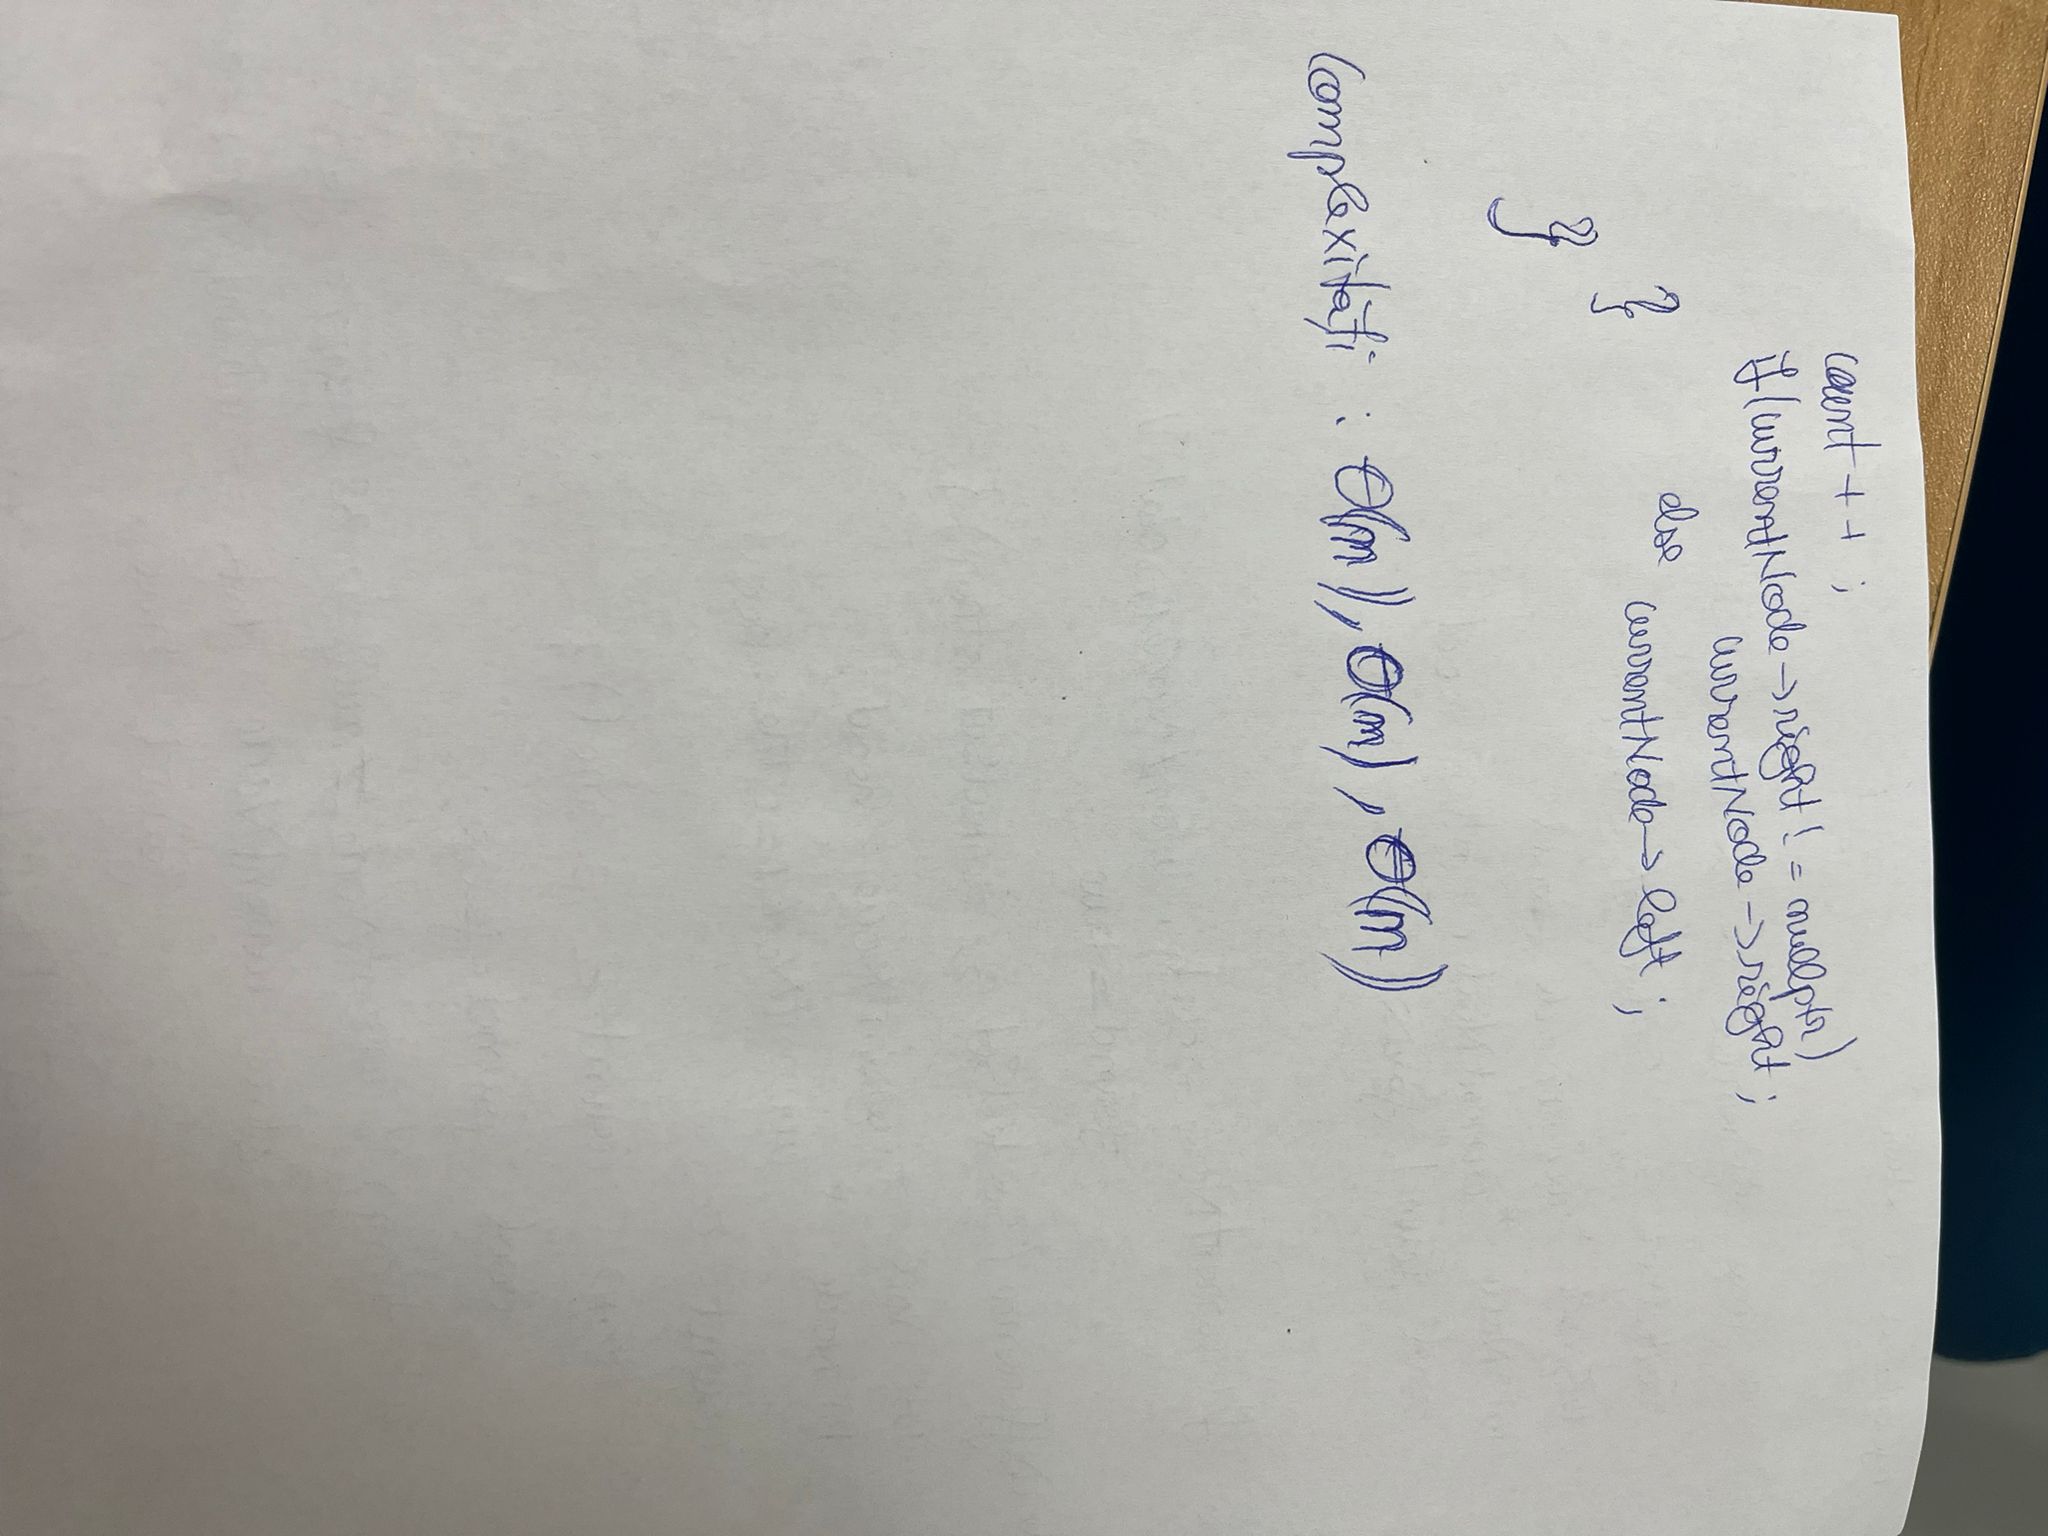 count ++ ;
if (currentNode->right != nullptr)
currentNode->right ;
else
currentNode->left ;
}
}
}
Complexități : θ(n), θ(n), θ(n)